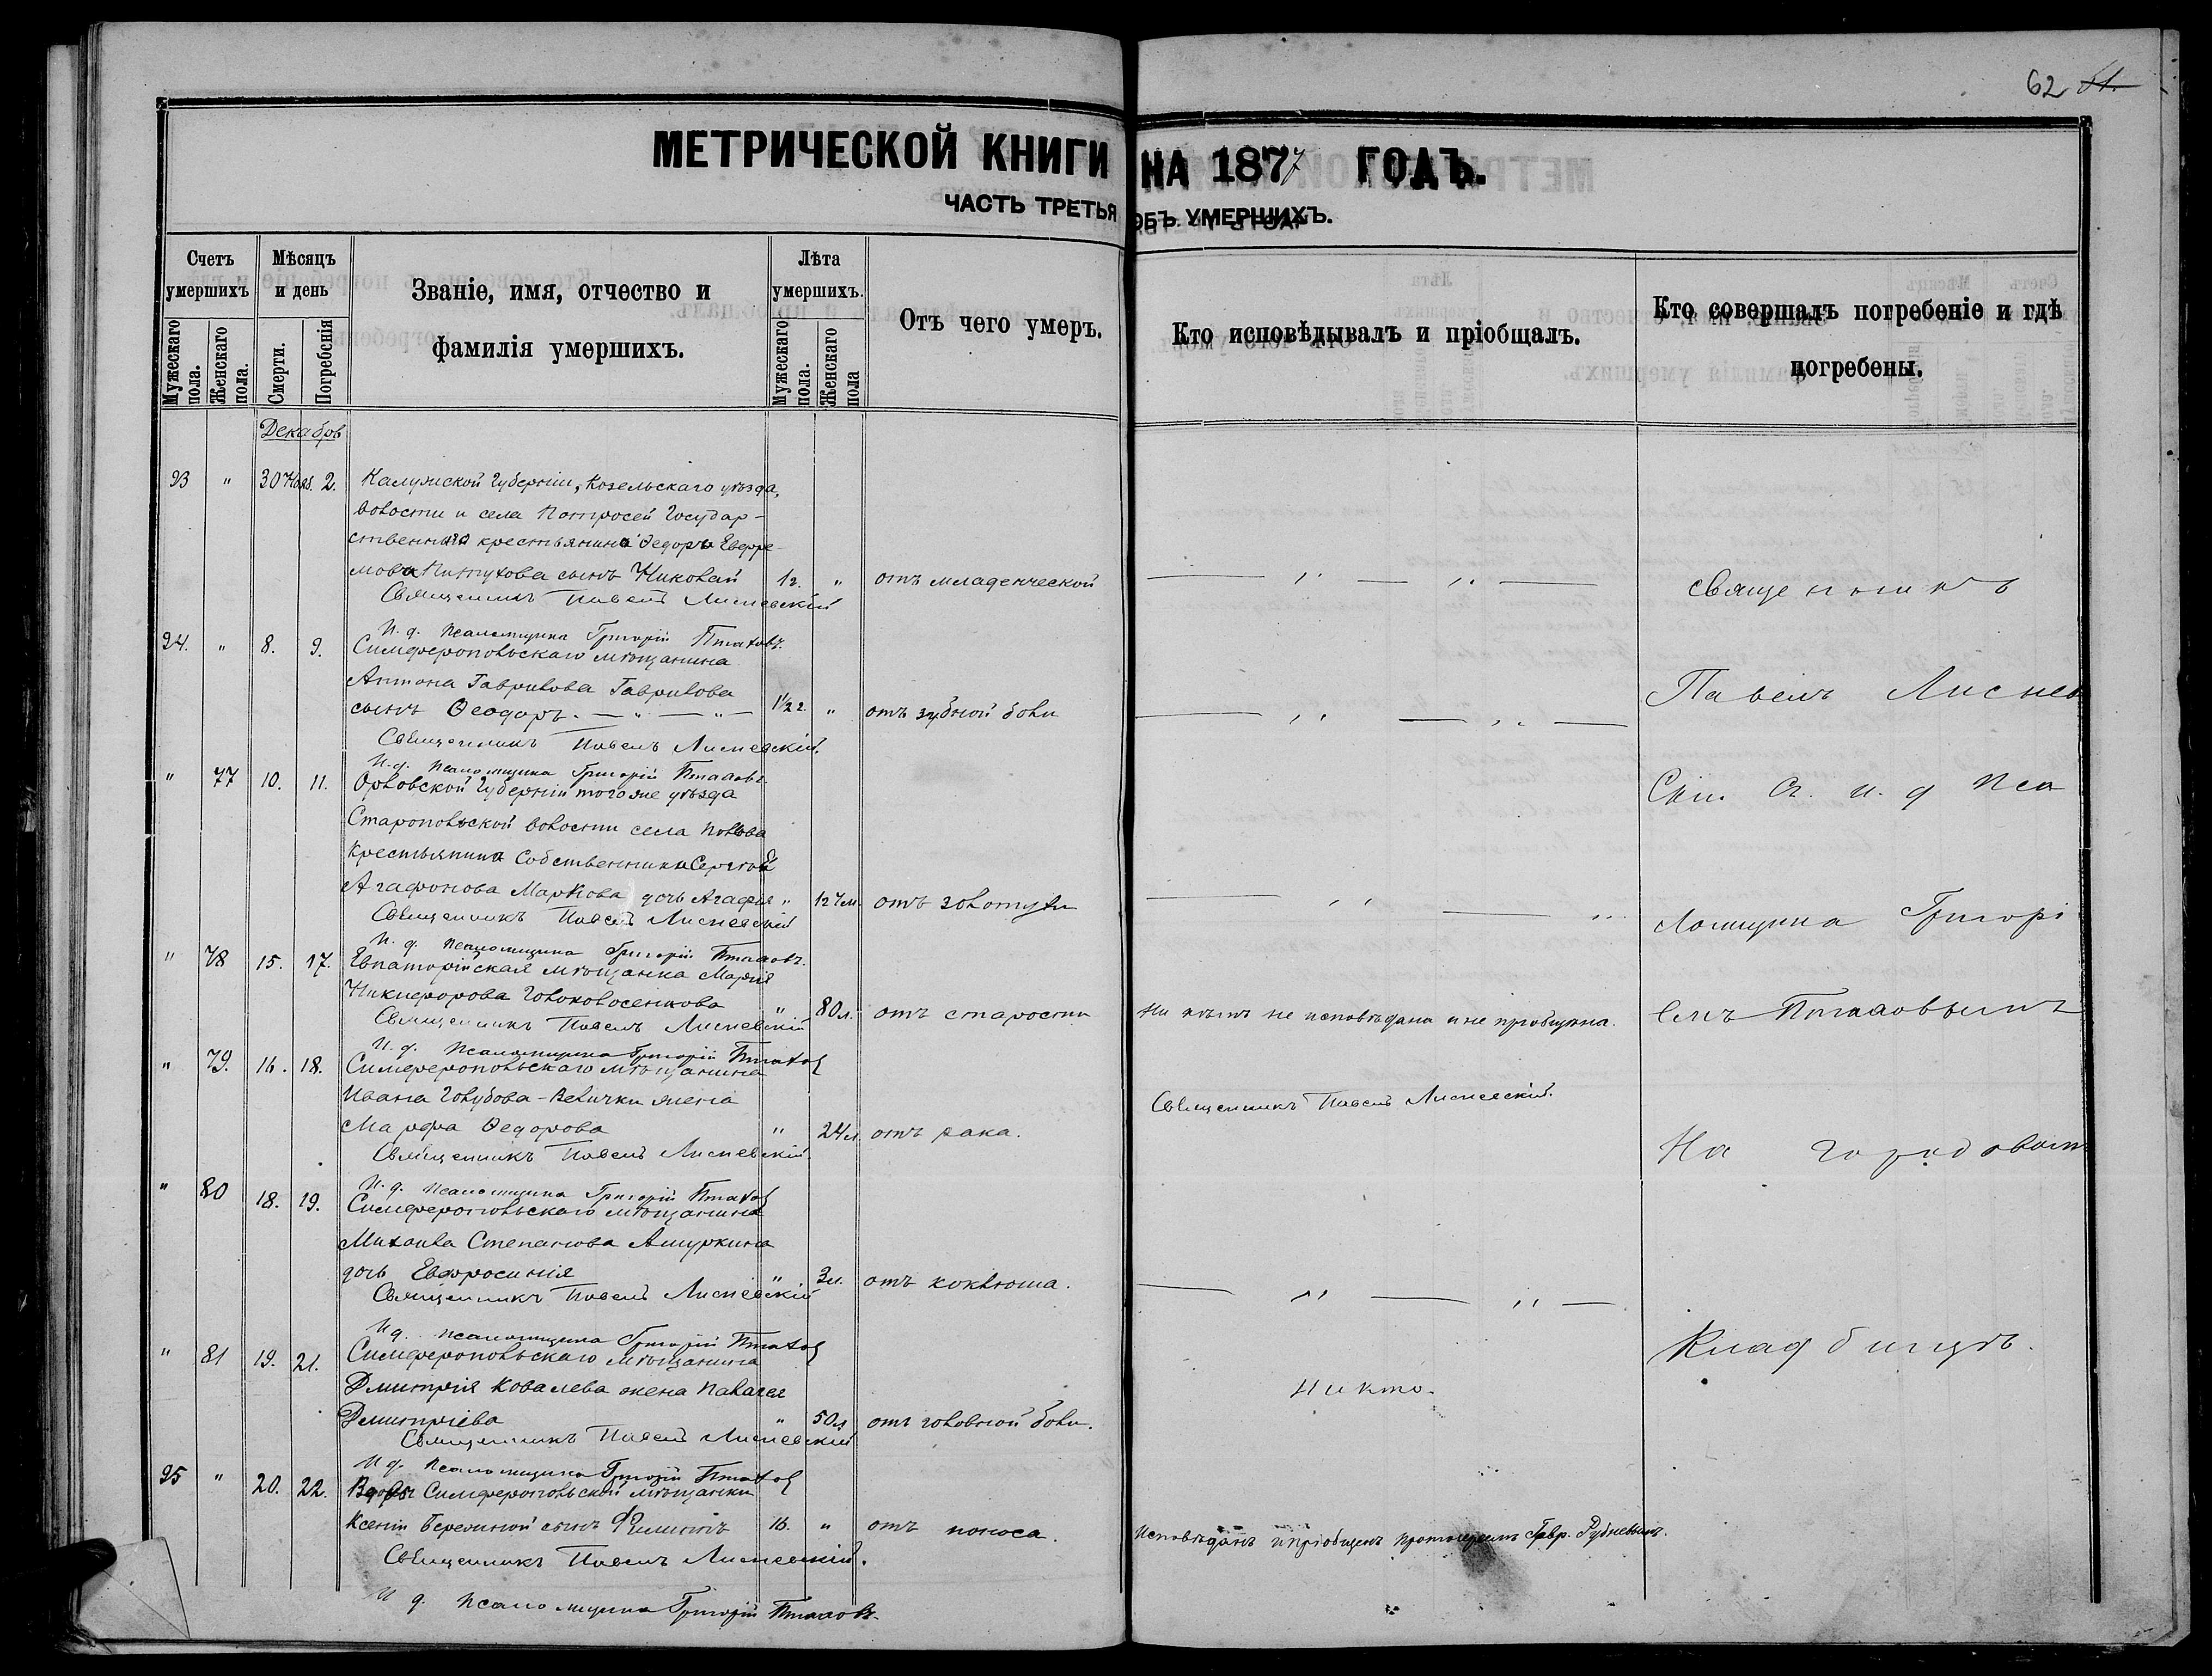 62 61.
МЕТРИЧЕСКОЙ КНИГИ НА 1877 ГОДЪ.
ЧАСТЬ ТРЕТЬЯ ОБЪ УМЕРШИХЪ.
Счетъ умершихъ
Мужескаго пола.
Женскаго пола.
Мѣсяцъ и день
Смерти.
Погребенія
Званіе, имя, отчество и фамилія умершихъ.
Лѣта умершихъ.
Мужескаго пола.
Женскаго пола
Отъ чего умеръ.
Кто исповѣдывалъ и пріобщалъ.
Кто совершалъ погребеніе и гдѣ погребены.
Декабрь
93 " 30 Нояб. 2. Калужской Губерніи, Козельскаго уѣзда,
волости и села Государ-
ственнаго крестьянина Ѳедора Евфре-
мова Питухова сынъ Николай 1 г. " отъ младенческой — " — " —
Священникъ Павелъ Лисневскій
И. д. Псаломщика Григорій Птаховъ.
94. " 8. 9. Симферопольскаго мѣщанина
Антона Гаврилова Гаврилова
сынъ Ѳеодоръ. — " — " — 1½ г. " отъ зубной боли — " — " —
Священникъ Павелъ Лисневскій.
И. д. Псаломщика Григорій Птаховъ.
" 77 10. 11. Орловской Губерніи того же уѣзда
волости села
Крестьянина Собственника Сергѣя
Агафонова Маркова дочь Агафія " отъ золотухи — " — "
Священникъ Павелъ Лисневскій
И. д. Псаломщика Григорій Птаховъ.
" 78 15. 17. Евпаторійская мѣщанка Марія
Никифорова " 80 л. отъ старости Ни кѣмъ не исповѣдана и не пріобщена.
Священникъ Павелъ Лисневскій
И. д. Псаломщика Григорій Птахов
" 79. 16. 18. Симферопольскаго мѣщанина
Ивана Голубова-Велички жена
Марфа Ѳедорова " 24 л. отъ рака.
Священникъ Павелъ Лисневскій.
Священникъ Павелъ Лисневскій.
И. д. Псаломщика Григорій Птахов
" 80 18. 19. Симферопольскаго мѣщанина
Михаила Степанова Ашуркина
дочь Евфросинія " 3 л. отъ коклюша. — " — " —
Священникъ Павелъ Лисневскій
И д. Псаломщика Григорій Птахов
" 81 19. 21. Симферопольскаго мѣщанина
Дмитрія Ковалева жена Палагея
Дмитріева " 50 л. отъ головной боли. Никто.
Священникъ Павелъ Лисневскій
И д. Псаломщика Григорій Птахов
95 " 20. 22. Вдовы Симферопольской мѣщанки
Ксеніи Березиной сынъ Филиппъ 16. " отъ поноса. Исповѣданъ и пріобщенъ протоіереемъ Гавр. Рудневымъ.
Священникъ Павелъ Лисневскій.
И д. Псаломщика Григорій Птаховъ.
Священникъ
Павелъ Лиснев
скій съ и. д Пса
ломщика Григорі
емъ Птаховымъ
На городовомъ
Кладбищѣ.